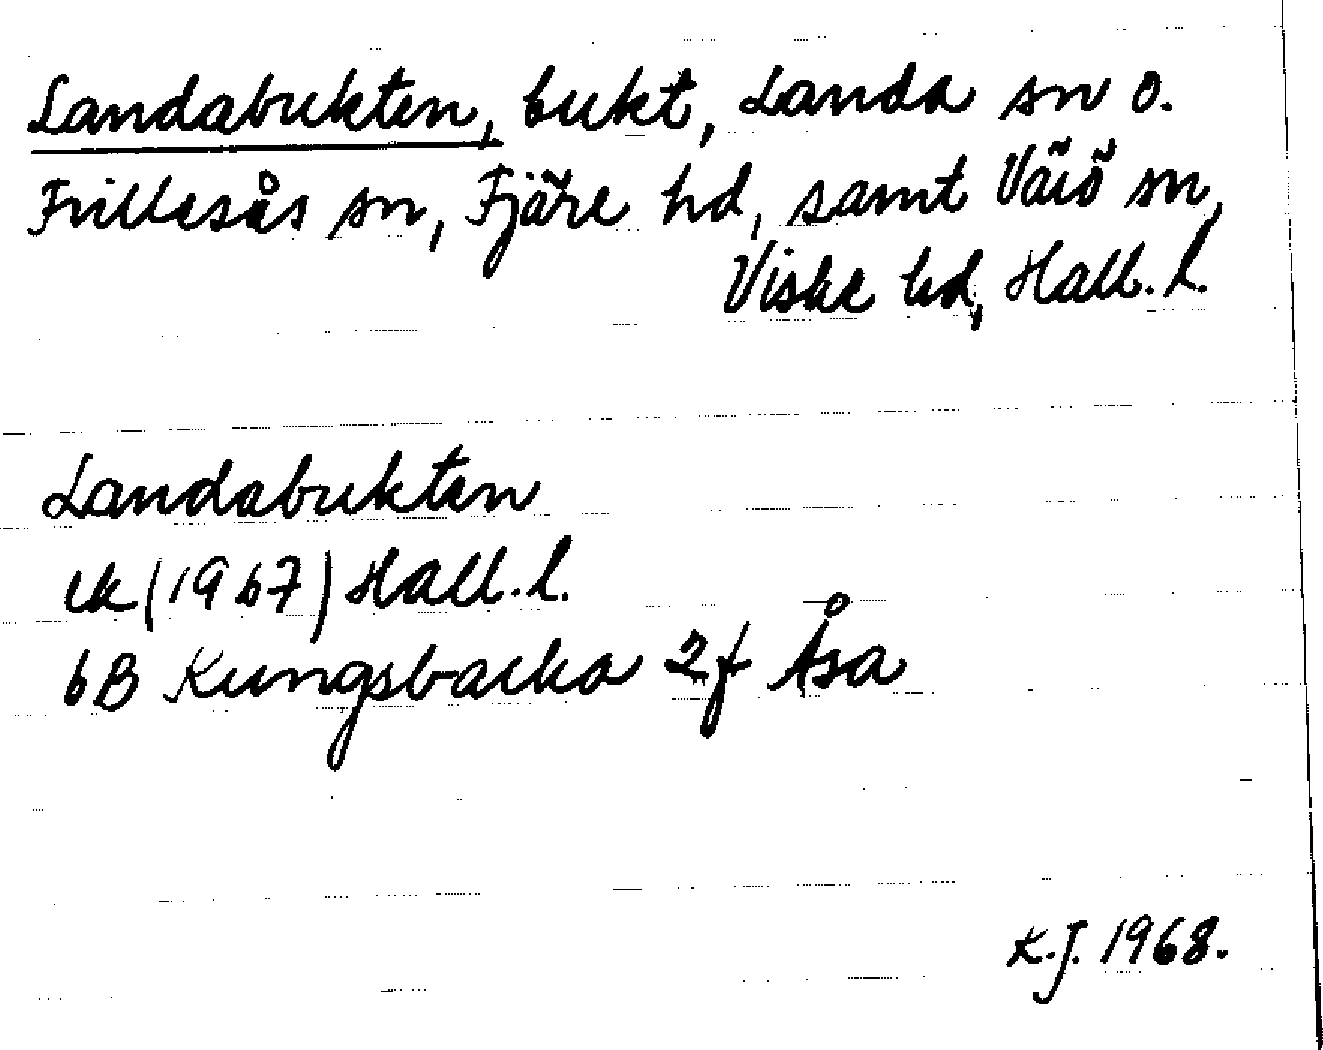 Landabukten, bukt, Landa sn o.
Frillesås sn, Fjäre hd, samt Värö sn,
Viske hd, Hall. l.
Landabukten
ek (1967) Hall. l.
6B Kungsbacka 2f Åsa
K.J. 1968.